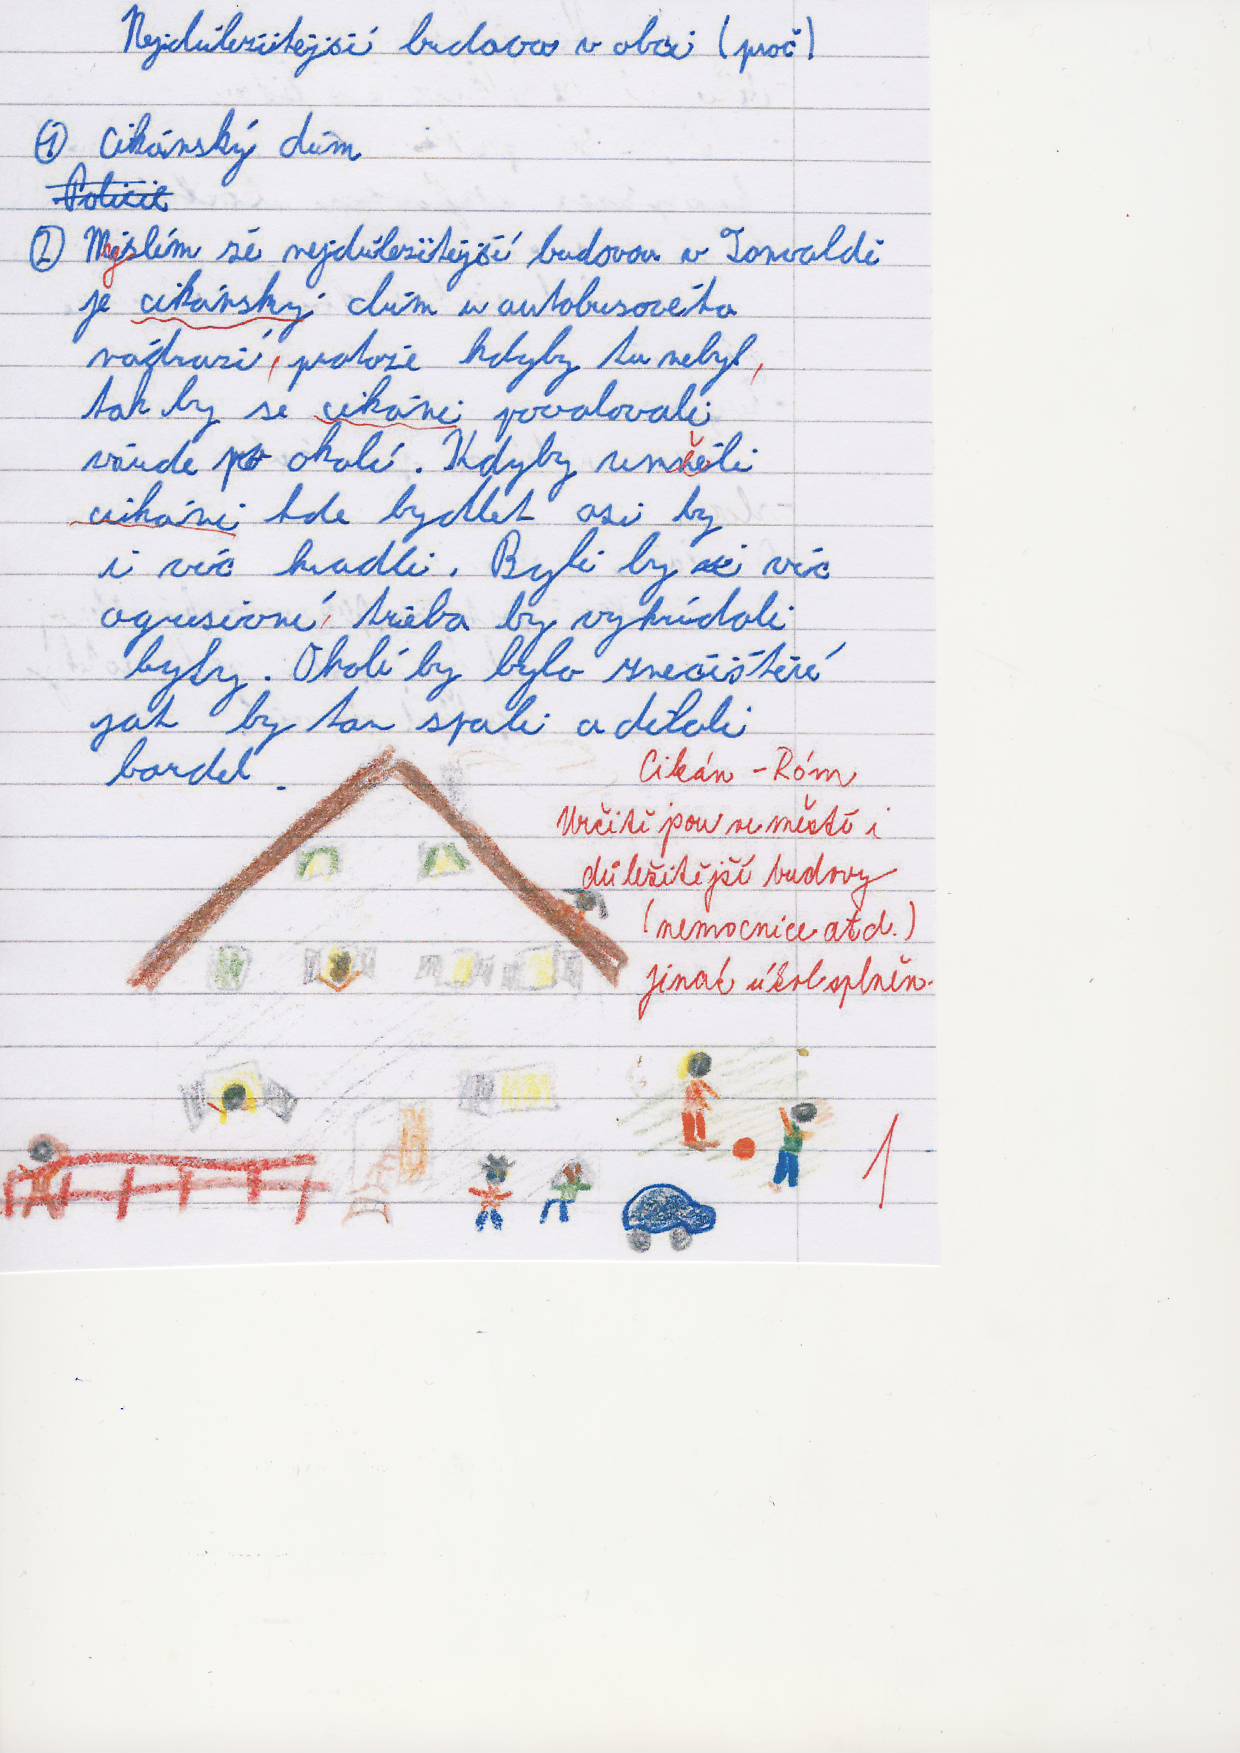 Nejdůležitější budova v obci (proč)
① Cikánský dům
Policie
② Myslím že nejdůležitější budovou v Tanvaldě
je cikánský dům u autobusového
nádraží, protože kdyby tu nebyl,
tak by se cikáni povalovali
všude po okolí. Kdyby neměli
cikáni kde bydlet asi by
i víc kradli. Byli by i víc
agresivní, třeba by vykrádali
byty. Okolí by bylo znečištěné
jak by tam spali a dělali
bordel.
Cikán - Róm
Určitě jsou ve městě i
důležitější budovy
(nemocnice atd.)
jinak úkol splněn.
1